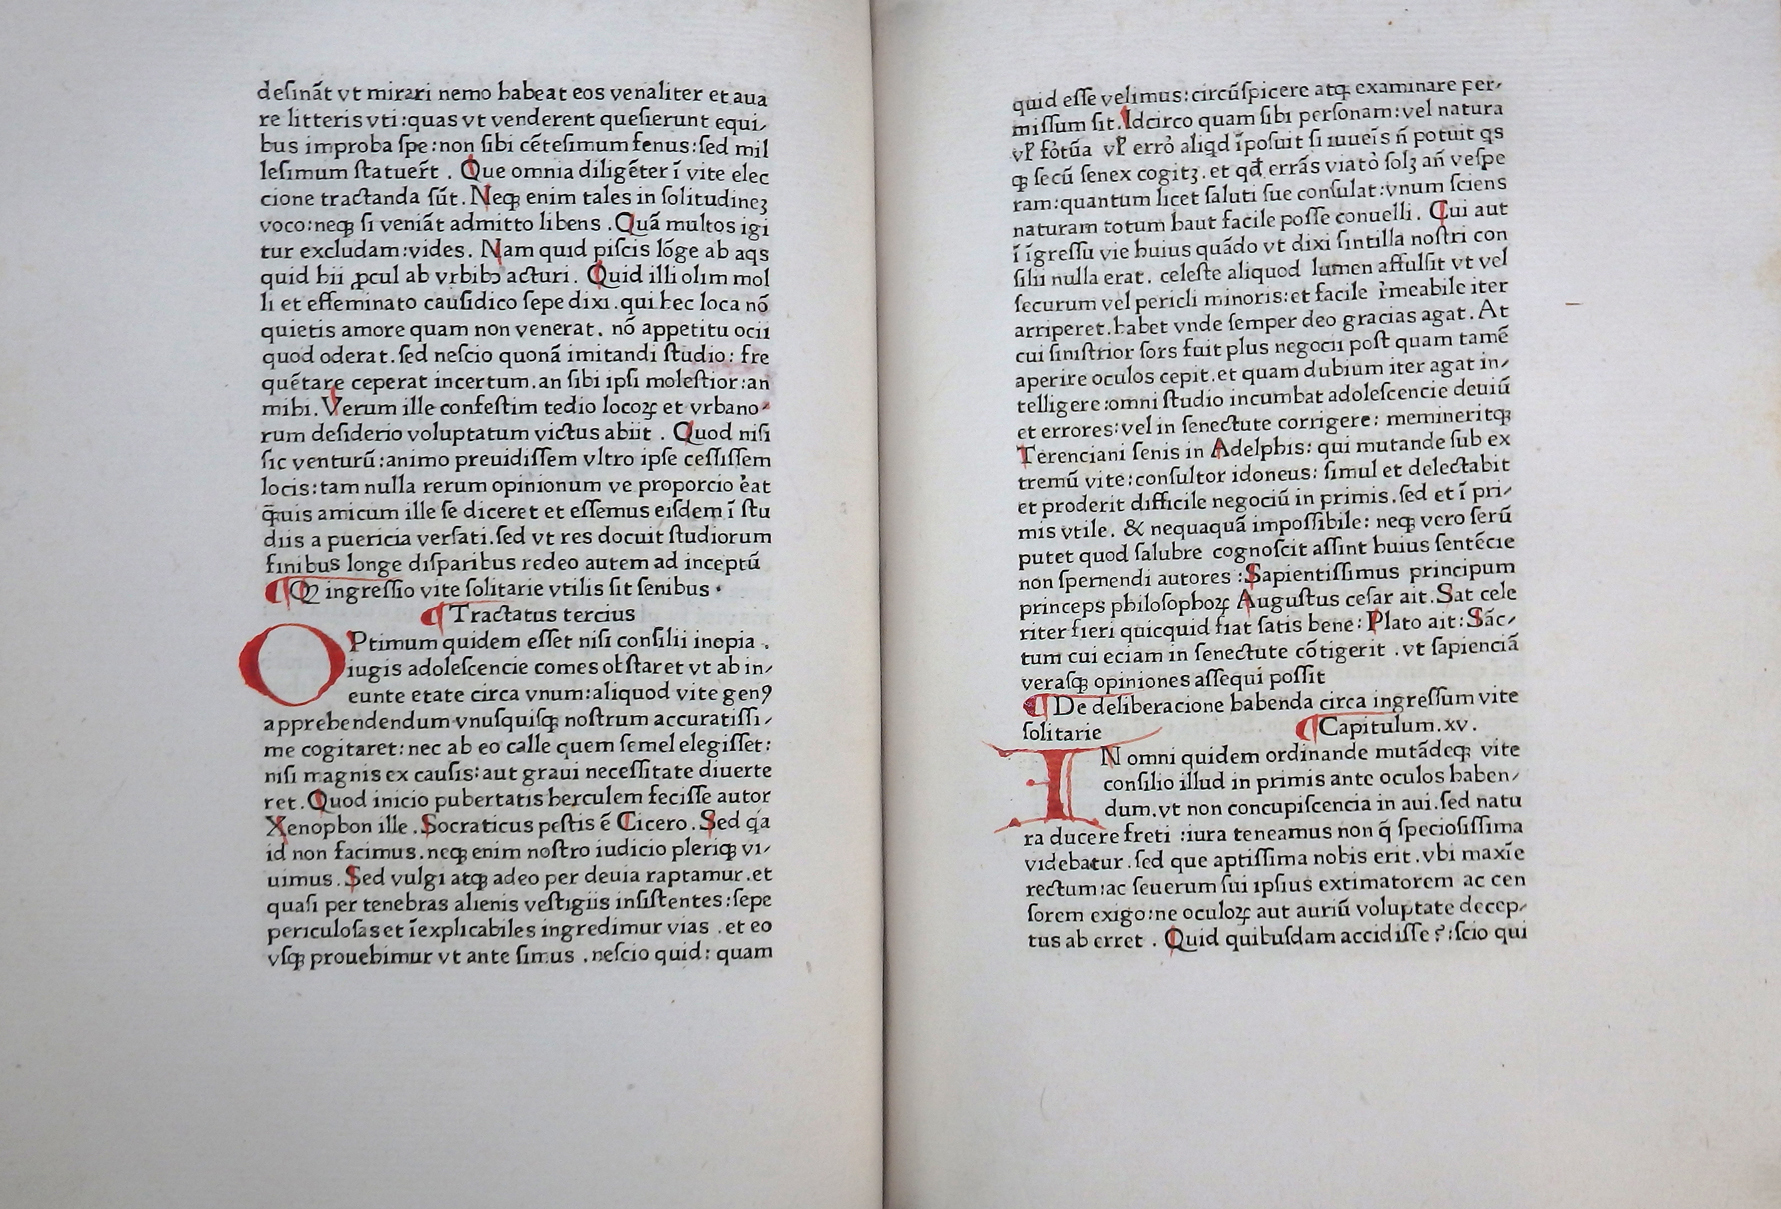 desinãt vt mirari nemo habeat eos venaliter et aua
re litteris vti:quas vt venderent quesierunt equi⸗
bus improba spe:non sibi cẽtesimum fenus:sed mil
lesimum statuer̃t . Que omnia diligẽter ĩ vite elec
cione tractanda sũt. Neqꝫ enim tales in solitudineꝫ
voco:neqꝫ si veniãt admitto libens . Quã multos igi
tur excludam:vides. Nam quid piscis lõge ab aqs
quid hii ꝓcul ab vrbibꝰ acturi. Quid illi olim mol
li et effeminato causidico sepe dixi. qui hec loca nõ
quietis amore quam non venerat. nõ appetitu ocii
quod oderat. sed nescio quonã imitandi studio: fre
quẽtare ceperat incertum. an sibi ipsi molestior:an
mihi. Verum ille confestim tedio locoꝝ et vrbano⸗
rum desiderio voluptatum victus abiit . Quod nisi
sic venturũ:animo preuidissem vltro ipse cessissem
locis:tam nulla rerum opinionum ve proporcio erat
q̃uis amicum ille se diceret et essemus eisdem ĩ stu
diis a puericia versati. sed vt res docuit studiorum
finibus longe disparibus redeo autem ad inceptũ
¶ Ꝙ ingressio vite solitarie vtilis sit senibus ·
¶ Tractatus tercius
OPtimum quidem esset nisi consilii inopia .
iugis adolescencie comes obstaret vt ab in⸗
eunte etate circa vnum:aliquod vite genꝰ
apprehendendum vnusquisqꝫ nostrum accuratissi⸗
me cogitaret: nec ab eo calle quem semel elegisset:
nisi magnis ex causis:aut graui necessitate diuerte
ret. Quod inicio pubertatis herculem fecisse autor
Xenophon ille . Socraticus pestis ẽ Cicero. Sed qa
id non facimus. neqꝫ enim nostro iudicio pleriqꝫ vi⸗
uimus. Sed vulgi atqꝫ adeo per deuia raptamur. et
quasi per tenebras alienis vestigiis insistentes:sepe
periculosas et ĩexplicabiles ingredimur vias . et eo
vsqꝫ prouehimur vt ante simus . nescio quid: quam
quid esse velimus:circũspicere atqꝫ examinare per⸗
missum sit. Idcirco quam sibi personam:vel natura
vꝉ fotũa vꝉ erro aliqd ĩposuit si iuueĩs ñ potuit qs
qꝫ secũ senex cogitꝫ. et qđ errãs viato solꝫ añ vespe
ram:quantum licet saluti sue consulat:vnum sciens
naturam totum haut facile posse conuelli. Cui aut
ĩ ĩgressu vie huius quãdo vt dixi sintilla nostri con
silii nulla erat. celeste aliquod lumen affulsit vt vel
securum vel pericli minoris:et facile rmeabile iter
arriperet. habet vnde semper deo gracias agat. At
cui sinistrior sors fuit plus negocii post quam tamẽ
aperire oculos cepit. et quam dubium iter agat in⸗
telligere:omni studio incumbat adolescencie deuiũ
et errores:vel in senectute corrigere: memineritqꝫ
Terenciani senis in Adelphis: qui mutande sub ex
tremũ vite:consultor idoneus: simul et delectabit
et proderit difficile negociũ in primis. sed et ĩ pri⸗
mis vtile. & nequaquã impossibile: neqꝫ vero serũ
putet quod salubre cognoscit assint huius sentẽcie
non spernendi autores :Sapientissimus principum
princeps philosophoꝝ Augustus cesar ait. Sat cele
riter fieri quicquid fiat satis bene: Plato ait: Sãc⸗
tum cui eciam in senectute cõtigerit . vt sapienciã
verasqꝫ opiniones assequi possit
¶ De deliberacione habenda circa ingressum vite
solitarie ¶ Capitulum. xv.
IN omni quidem ordinande mutãdeqꝫ vite
consilio illud in primis ante oculos haben⸗
dum. vt non concupiscencia in aui. sed natu
ra ducere freti :iura teneamus non q̃ speciosissima
videbatur. sed que aptissima nobis erit. vbi maxĩe
rectum:ac seuerum sui ipsius extimatorem ac cen
sorem exigo:ne oculoꝝ aut auriũ voluptate decep⸗
tus ab erret . Quid quibusdam accidisse ?:scio qui